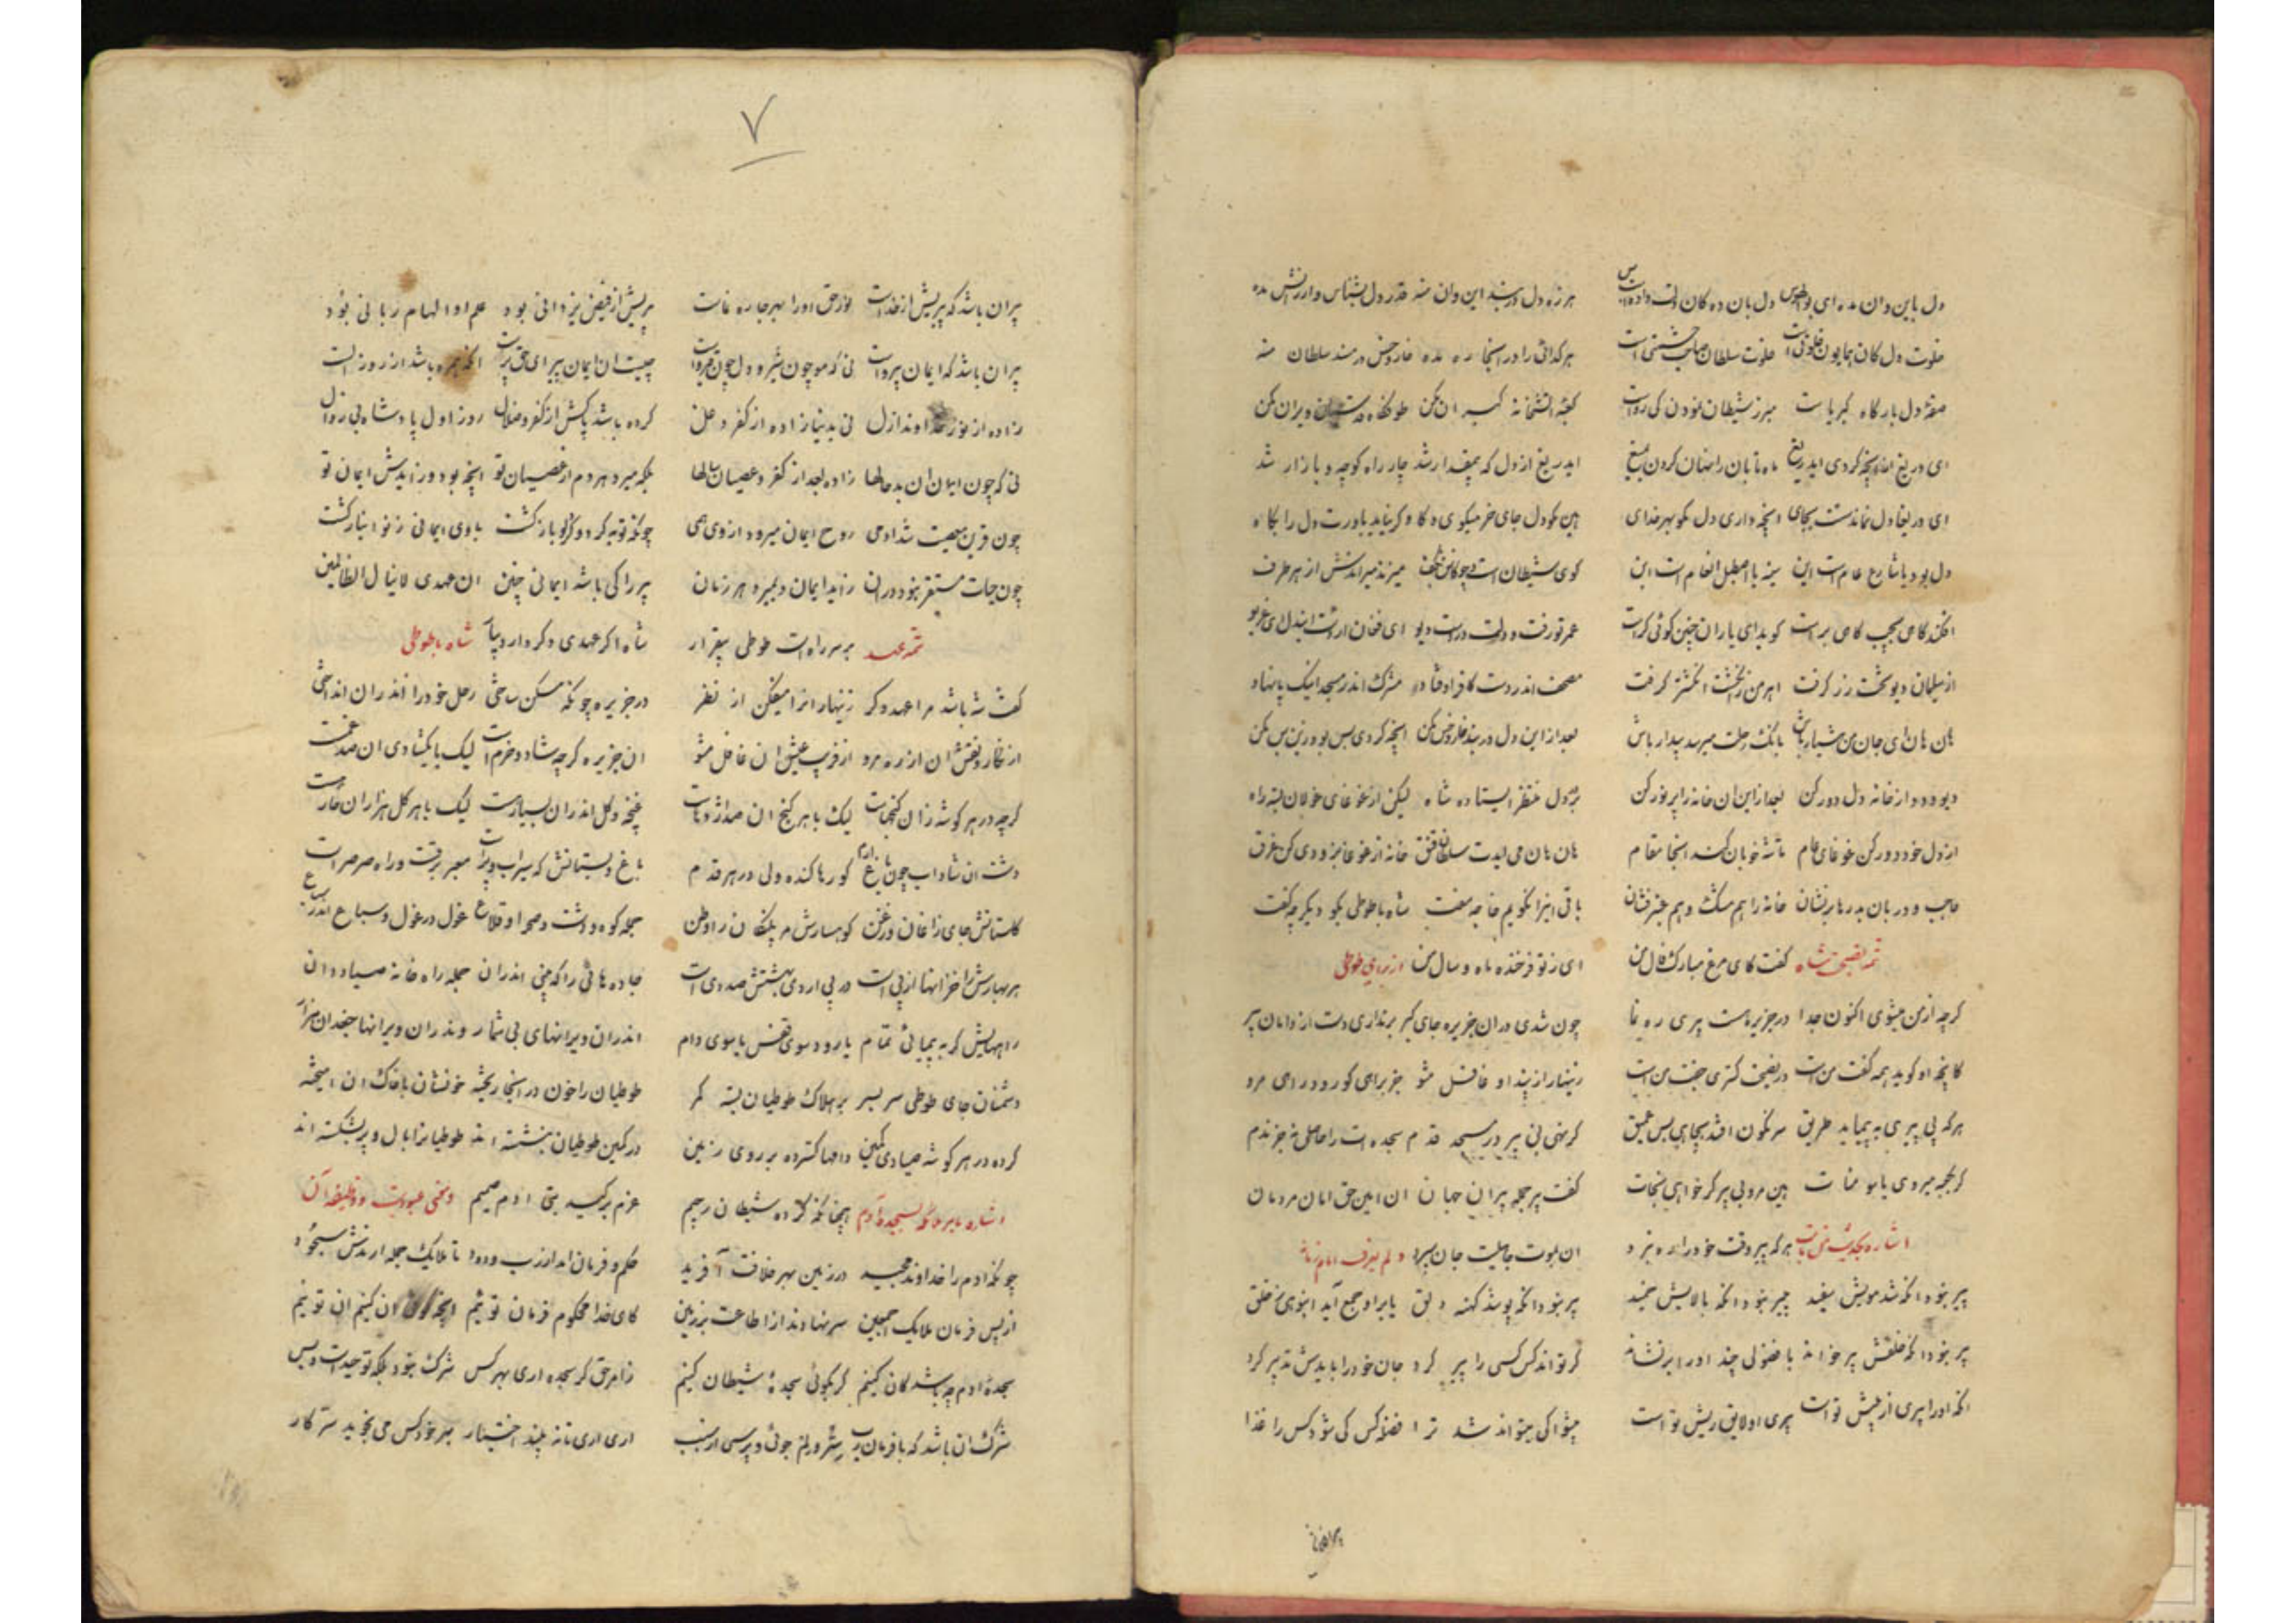 دل باین وان مده ای بوالهوس دل بان ده کان دلت داده است و بس
هرزه دل در بند این وان منه قدر دل بشناس و ارزانش مده
خلوت دل کان همایون خلوت است خلوت سلطان صاحب حشمتی است
هر کدائی را در اینجا ره مده خار و خس در مسند سلطان منه
صفهٔ دل بارکاه کبریاست مبرز شیطان نمودن کی رواست
کعبه اتشخانهٔ کبران مکن
ای دریغ اندر یچه کردی ایدریغ ماه تابان را نهان کردن بمیغ
ایدریغ از دل که بیمقدار شد چار راه کوچه و بازار شد
ای دریغا دل نماندست بجای انچه داری دل مکو بهر خدای
هین مکو دل جای خر میکوی و کاو
دل بود یا شارع عام است این سینه یا اصطبل انعام است این
افکند کاهی بجیب کاهی براست کوید ای یاران چنین کوئی کراست
از سلیمان دیو تخت زر کرفت اهرمن زانکشت انکشتر کرفت
مصحف اندر دست کافر اوفتاد مشرک اندر مسجد اینک پا نهاد
هان هان ای جان من هشیار باش بانک رحلت میرسد بیدار باش
بعد ازاین دل در بند خار و خس مکن انچه کردی بس بود زین پس مکن
دیو و دد از خانهٔ دل دور کن بعد ازاین ان خانه را پر نور کن
بر در دل منتظر ایستاده شاه لیکن از غوغای غولان بسته راه
از دل خود دور کن غوغای عام تا شه خوبان کند انجا مقام
حاجب و دربان بدرها برنشان خانه را هم مشک و هم عنبر فشان
باقی اینرا نکویم خامه سفت شاه با طوطی بکو دیکر چه کفت
تمه نصیحت شاه کفت کای مرغ مبارک فال من
ای ز تو فرخنده ماه و سال من از برای طوطی
کرچه از من میشوی اکنون جدا در جزیره هست پیری ره نما
چون شدی در ان جزیره جای کیر بر نداری دست از دامان پیر
کانچه او کوید همه کفت من است در نصیحت کستری جفت من است
زینهار از پند او غافل مشو جز برای کو رود راهی مرو
هر که بی پیری به پیماید طریق سرنکون افتد بچاهی بس عمیق
کر نهی بی پیر در مسجد قدم سجده ات را حاصلی نه جز ندم
کر بکعبه میروی یا سومنات هین مرو بی پیر کر خواهی نجات
کفت پیر جمله پیران جهان ان امین حق امان مردمان
اشاره بحدیث من مات هر که پیر وقت خود را ره نبرد
ان بموت جاهلیت جان سپرد و لم یعرف امام زمانه
پیر نبود انکه شد مویش سفید پیر نبود انکه بالایش خمید
پیر نبود انکه پوشد کهنه دلق یا بر او جمع آید انبوهی ز خلق
پیر نبود انکه خلقش پیر خواند یا فضولی چند او را بر نشاند
کر تواند کس کسی را پیر کرد جان خود را بایدش تدبیر کرد
انکه او را پیری از پیش تو است پیری او لایق ریش تو است
پیشوا کی میتواند شد ترا فضله کس کی شود کس را غذا
۷
پیر ان باشد که پیریش از خداست نور حق او را بهر جا ره نماست
پیریش از فیض یزدانی بود علم او الهام ربانی بود
پیر ان باشد که ایمان پیر و است نی که مو چون شیر و دل چون قیر و است
چیست ان ایمان پیر ای حق پرست انکه همره باشد از روز الست
زاده از نور خداوند ازل نی بدنیا زاده از کفر و علل
کرده باشد پاکش از کفر و ضلال روز اول پادشاه بی زوال
نی که چون ایمان ان بد حالها زاده بعد از کفر و عصیان سالها
بلکه میرد هر دم از عصیان تو انچه بود و زاید ش ایمان تو
چون قرین معصیت شد ادمی روح ایمان میرود از وی همی
چونکه توبه کرد و کرد او بازکشت با وی ایمانی ز نو انباز کشت
چون حیات مستقر نبود دران زاید ایمان و بمیرد هر زمان
پیر را کی باشد ایمانی چنین ان عهدی لا ینال الظالمین
تمه عهد بر سر راه است طوطی بیقرار
شاه را کر عهدی دکر دارد بیار شاه با طوطی
کفت شه باشد مرا عهد دکر زینهار انرا میفکن از نظر
در جزیره چونکه مسکن ساختی رحل خود را اندران انداختی
از نکار و نقش ان از ره مرو از فریب عیش ان غافل مشو
ان جزیره کرچه شاد و خرم است لیک با یکشادی ان صد غمست
کرچه در هر کوشه زان کنجهاست لیک با هر کنج ان صد اژدهاست
غنچه و کل اندران بسیار هست لیک با هر کل هزاران خار هست
دشت ان شاداب چون باغ ارم کورها کنده ولی در هر قدم
باغ و بستانش که سیراب و تر است معبر برقست و راه صرصر است
کلستانش جای زاغان و زغن کوهسارش مر پلنکان را وطن
جمله کوه و دشت و صحرا و قلاع غول در غول و سباع اندر سباع
هر بهارش را خزانها از پی است در پی اردی بهشتش صد دی است
جاده هائی را که بینی اندران جمله راه خانهٔ صیاد دان
راههایش کر به پیمائی تمام یا رود سوی قفس یا سوی دام
اندران ویرانهای بی شمار و ندران ویرانها جغدان هزار
دشمنان جای طوطی سر بسر بر هلاک طوطیان بسته کمر
طوطیان را خون در انجا ریخته خونشان با خاک ان امیخته
کرده در هر کوشه صیادی کمین دامها کسترده بر روی زمین
در کمین طوطیان بنشسته اند طوطیانرا بال و پر بشکسته اند
اشاره بامر ملائکه بسجدهٔ آدم همچنانکه کرده شیطان رجیم
عزم بر کید بنی ادم صمیم و معنی عبودیت و وظیفهٔ آن
چونکه ادم را خداوند مجید در زمین بهر خلافت آفرید
حکم و فرمان امد از رب ودود تا ملایک جمله ارندش سجود
از پس فرمان ملایک اجمعین سر نهادند از اطاعت بر زمین
کای خدا محکوم فرمان توئیم انچه کوئی ان کنیم ان توئیم
سجدهٔ ادم چه باشد کان کنیم کر بکوئی سجدهٔ شیطان کنیم
ز امر حق کر سجده اری بهر کس شرک نبود بلکه توحید است و بس
شرک ان باشد که با فرمان رب سر و رمز جوئی و پرسی از سبب
اری اری تا نه بیند اختیار بهر خود کس می نجوید سر کار